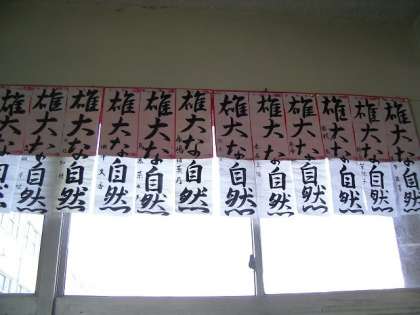 雄大な自然
雄大な自然
雄大な自然
雄大な自然
雄大な自然
雄大な自然
雄大な自然
雄大な自然
雄大な自然
雄大な自然
雄大な自然
雄大な自然